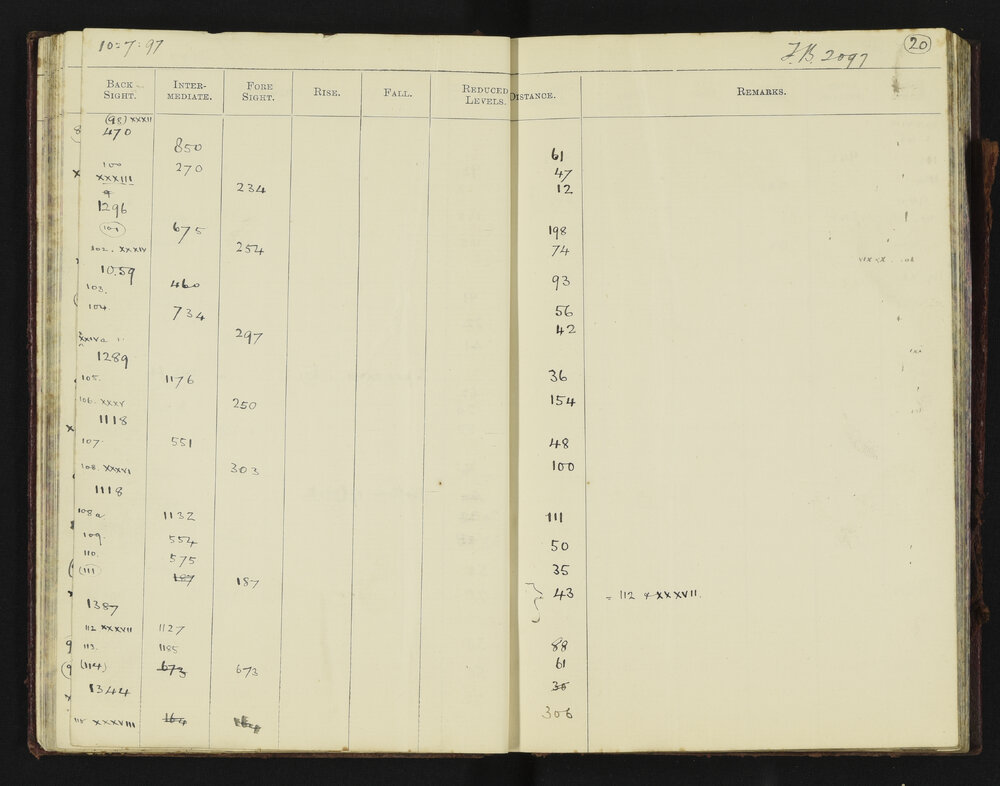 10=7:97
F.B 2097 20
BACK SIGHT. INTER-MEDIATE. FORE SIGHT. RISE. FALL. REDUCED LEVELS. DISTANCE. REMARKS.
(98) XXXII
470
850 61
100 270 47
XXXIII 234 12
1296
675 198
102. XXXIV 254 74
10.59
103. 460 93
104. 734 56
297 42
1289
105. 1176 36
106. XXXV 250 154
1118
107 551 48
108. XXXVI 303 100
1118
108a 1132 111
109. 554 50
110. 575 35
(111) 187 187
43 = 112 & XXXVII.
1387
112 XXXVII 1127
113. 1185 88
(114) 673 673 61
1344 36
115 XXXVIII 164 164 306